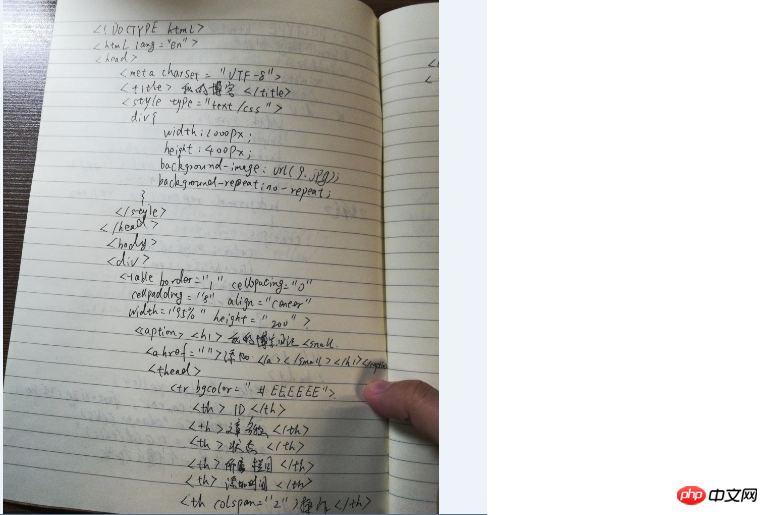 <!DOCTYPE html>
<html lang="en">
<head>
<meta charset="UTF-8">
<title>我的博客</title>
<style type="text/css">
div{
width:1000px;
height:400px;
background-image:url(9.jpg);
background-repeat:no-repeat;
}
</style>
</head>
<body>
<div>
<table border="1" cellspacing="0"
cellpadding="8" align="center"
width="95%" height="200">
<caption><h1>我的博客<small
<a href="">添加</a></small></h1></caption
<thead>
<tr bgcolor="#EEEEEE">
<th>ID</th>
<th></th>
<th>状态</th>
<th>所属栏目</th>
<th>添加时间</th>
<th colspan="2">操作</th>
php 中文网